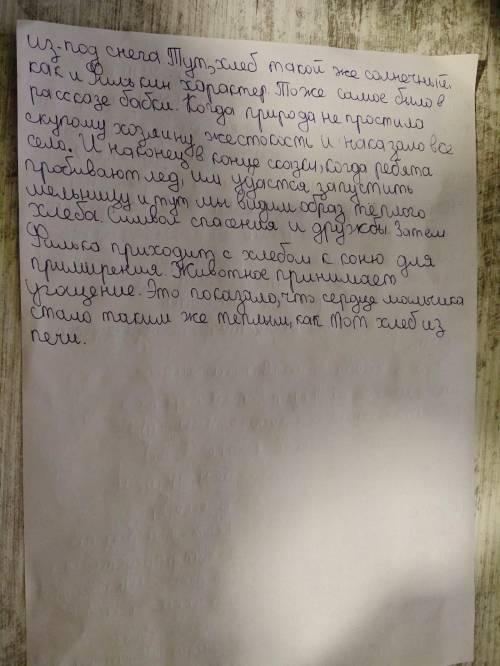 из-под снега. Тут, хлеб такой же солнечный,
как и Филькин характер. Тоже самое было в
рассказе бабки. Когда природа не простила
скупому хозяину жестокость и наказало все
село. И наконец в конце сказки, когда ребята
пробивают лед, им удастся запустить
мельницу и тут мы видим образ тёплого
хлеба. Символ спасения и дружбы. Затем
Филька приходит с хлебом к коню для
примирения. Животное принимает
угощение. Это показало, что сердце мальчика
стало таким же теплым, как тот хлеб из
печи.